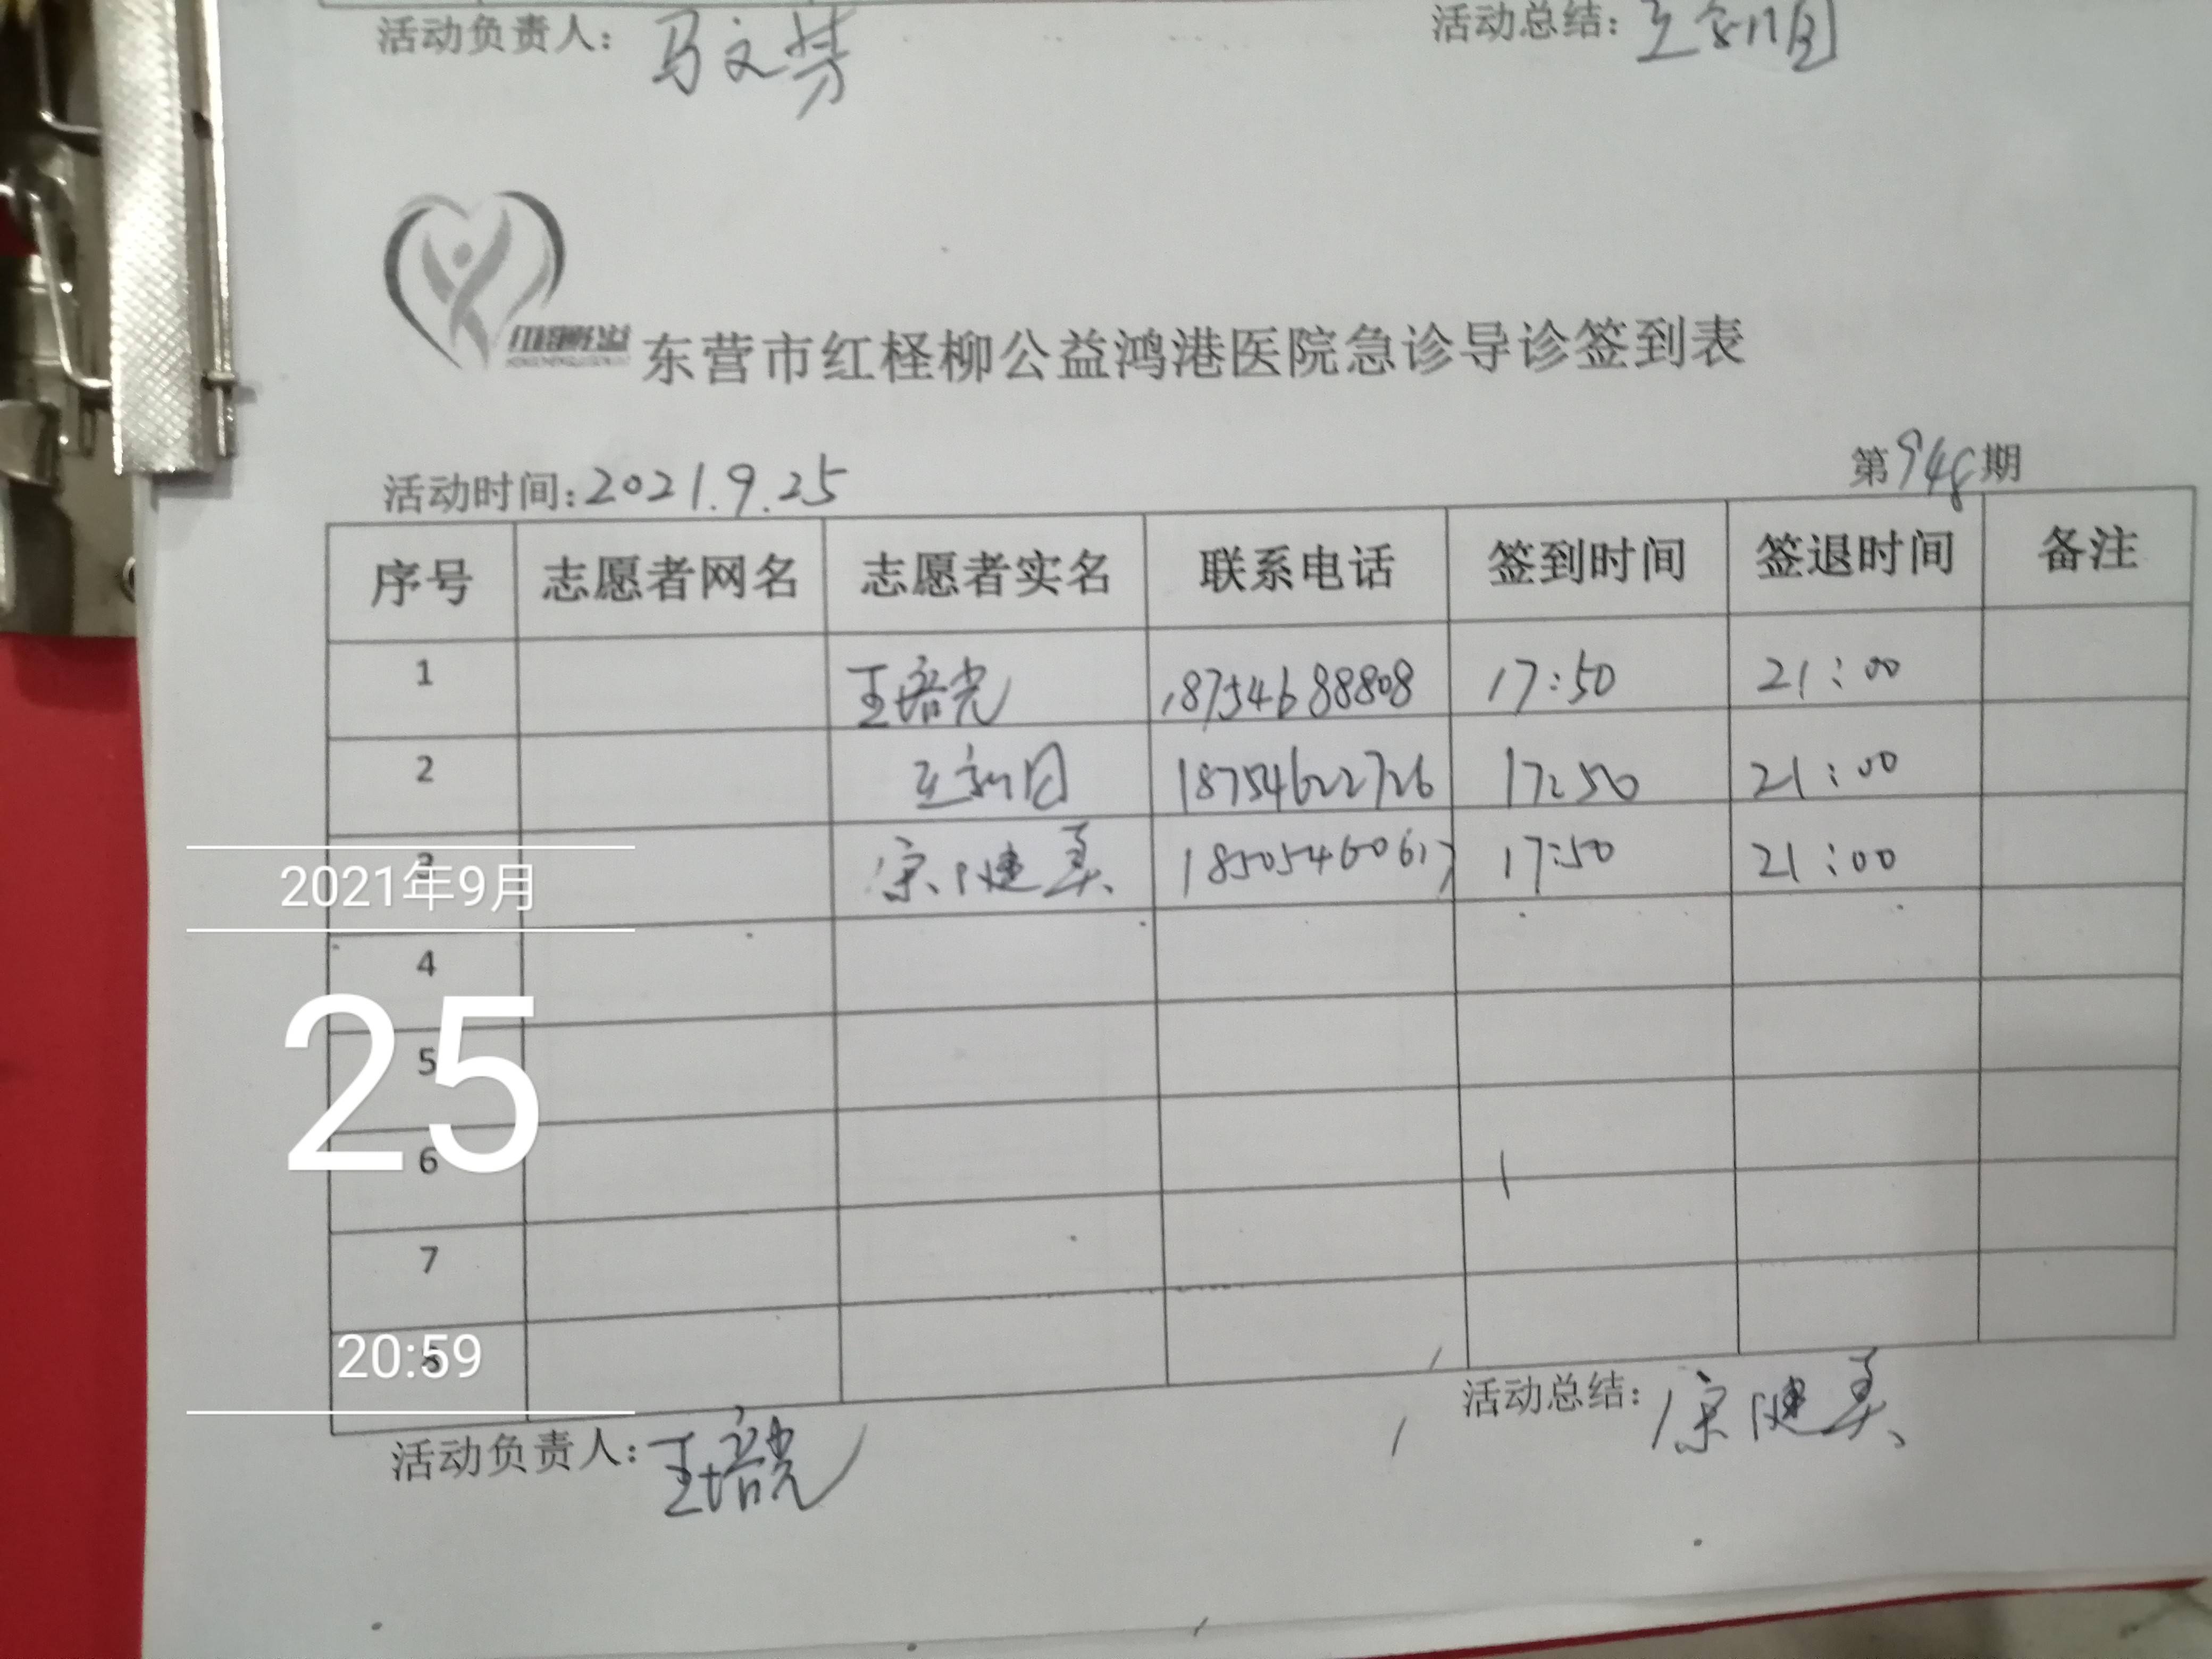 活动负责人：马文芳 活动总结：
东营市红柽柳公益鸿港医院急诊导诊签到表
活动时间：2021.9.25 第948期
序号 志愿者网名 志愿者实名 联系电话 签到时间 签退时间 备注
1 王培光 18754688808 17:50 21:00
2 18754622726 17:50 21:00
3 宗健美 17:50 21:00
2021年9月
4
25
5
6
7
20:59
活动总结：宗健美
活动负责人：王培光